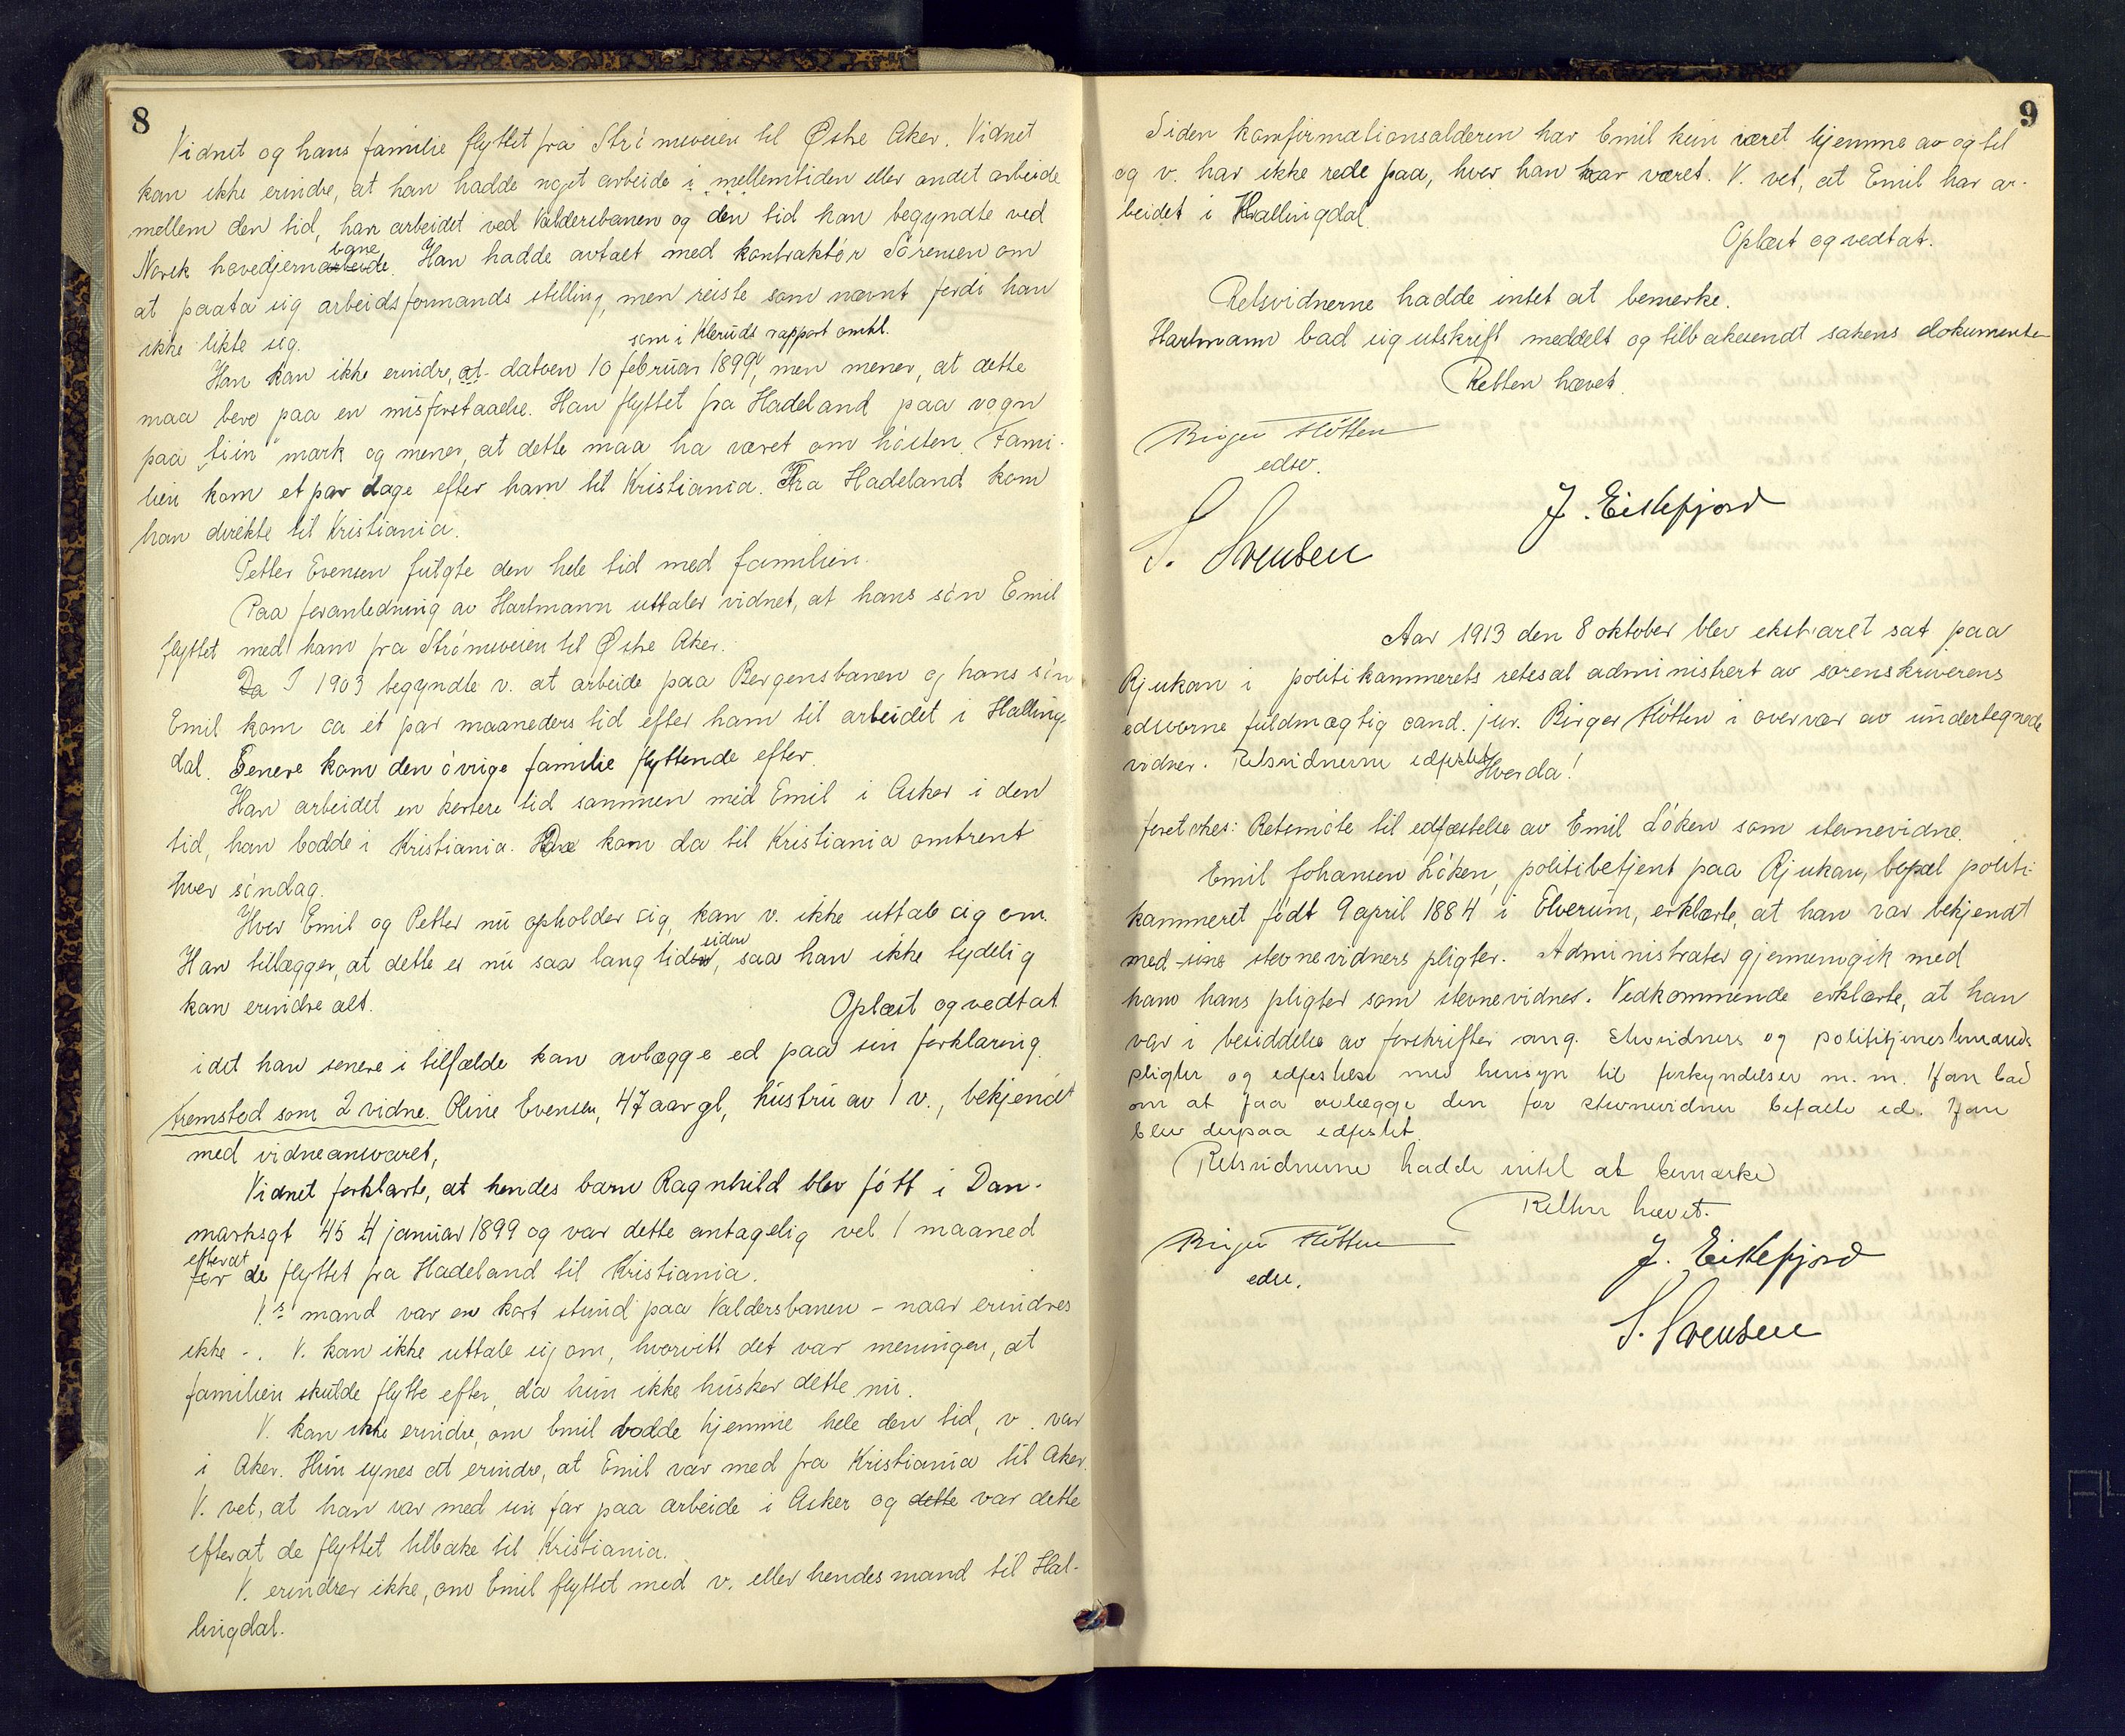 8
Vidnet og hans familie flyttet fra Strømsveien til Østre Aker. Vidnet
kan ikke erindre, at han hadde noget arbeide i mellemtiden eller andet arbeide
mellem den tid, han arbeidet ved Valdersbanen og den tid han begyndte ved
Norsk hovedjernbane arbeide. Han hadde avtalt med kontraktør Sørensen om
at paata sig arbeidsformands stilling, men reiste som nævnt fordi han
ikke likte sig.
som i Kleruds rapport omhl.
Han kan ikke erindre, at datoen 10 februar 1899, men mener, at dette
maa bero paa en misforstaaelse. Han flyttet fra Hadeland paa vogn
paa "tiin" mark og mener, at dette maa ha været om høsten. Fami-
lien kom et par dage efter ham til Kristiania. Fra Hadeland kom
han direkte til Kristiania.
Petter Evensen fulgte den hele tid med familien.
Paa foranledning av Hartmann uttaler vidnet, at hans søn Emil
flyttet med ham fra Strømsveien til Østre Aker.
Da I 1903 begyndte v. at arbeide paa Bergensbanen og hans søn
Emil kom ca et par maaneders tid efter ham til arbeidet i Halling-
dal. Senere kom den øvrige familie flyttende efter.
Han arbeidet en kortere tid sammen med Emil i Asker i den
tid, han bodde i Kristiania. De kom da til Kristiania omtrent
hver søndag.
Hvor Emil og Petter nu opholder sig, kan v. ikke uttale sig om.
Han tillægger, at dette er nu saa lang tid siden, saa han ikke tydelig
kan erindre alt.
Oplæst og vedtat
idet han senere i tilfælde kan avlægge ed paa sin forklaring.
Fremstod som 2 vidne. Oline Evensen, 47 aar gl, hustru av 1 v., bekjendt
med vidneansvaret,
Vidnet forklarte, at hendes barn Ragnhild blev født i Dan-
marksgt 45 4 januar 1899 og var dette antagelig vel 1 maaned
efterat
før de flyttet fra Hadeland til Kristiania.
V.s mand var en kort stund paa Valdersbanen - naar erindres
ikke -. V. kan ikke uttale sig om, hvorvitt det var meningen, at
familien skulde flytte efter, da hun ikke husker dette nu.
V. kan ikke erindre, om Emil bodde hjemme hele den tid, v. var
i Aker. Hun synes at erindre, at Emil var med fra Kristiania til Aker.
V. vet, at han var med sin far paa arbeide i Asker og dette var dette
efterat de flyttet tilbake til Kristiania.
V. erindrer ikke, om Emil flyttet med v. eller hendes mand til Hal-
lingdal.
9
Siden konfirmationsalderen har Emil kun været hjemme av og til
og v. har ikke rede paa, hvor han har været. V. vet, at Emil har ar-
beidet i Hallingdal.
Oplæst og vedtat.
Retsvidnerne hadde intet at bemerke.
Hartmann bad sig utskrift meddelt og tilbakesendt sakens dokumenter
Retten hævet.
Birger Fløtten
edsv.
J. Eistefjord
S. Svensen
Aar 1913 den 8 oktober blev ekstraret sat paa
Rjukan i politikammerets retssal administrert av sorenskriverens
edsvorne fuldmægtig cand. jur. Birger Fløtten i overvær av undertegnede
vidner. Retsvidnerne edfestet Hvorda!
foretokes: Retsmøte til edfæstelse av Emil Løken som stevnevidne.
Emil Johansen Løken, politibetjent paa Rjukan, bopæl politi-
kammeret født 9 april 1884 i Elverum, erklærte, at han var bekjendt
med sine stevnevidners pligter. Administrator gjennemgik med
ham hans pligter som stevnevidne. Vedkommende erklærte, at han
var i besiddelse av forskrifter ang. stevnevidners og polititjenestemænds
pligter og edfestelse med hensyn til forkyndelser m.m. Han bad
om at faa avlægge den for stevnevidner befalte ed. Han
blev derpaa edfestet.
Retsvidnerne hadde intet at bemærke
Retten hævet.
Birger Fløtten
edsv.
J. Eistefjord
S. Svensen